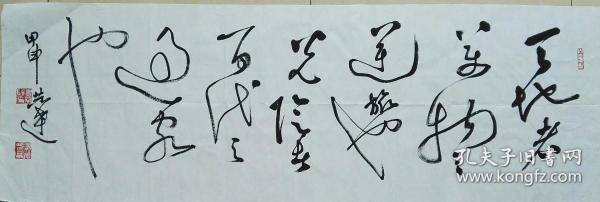 天地者
萬物之
逆旅也
光陰者
百代之
過客
也
甲申
孔夫子旧书网
www.kongfz.com